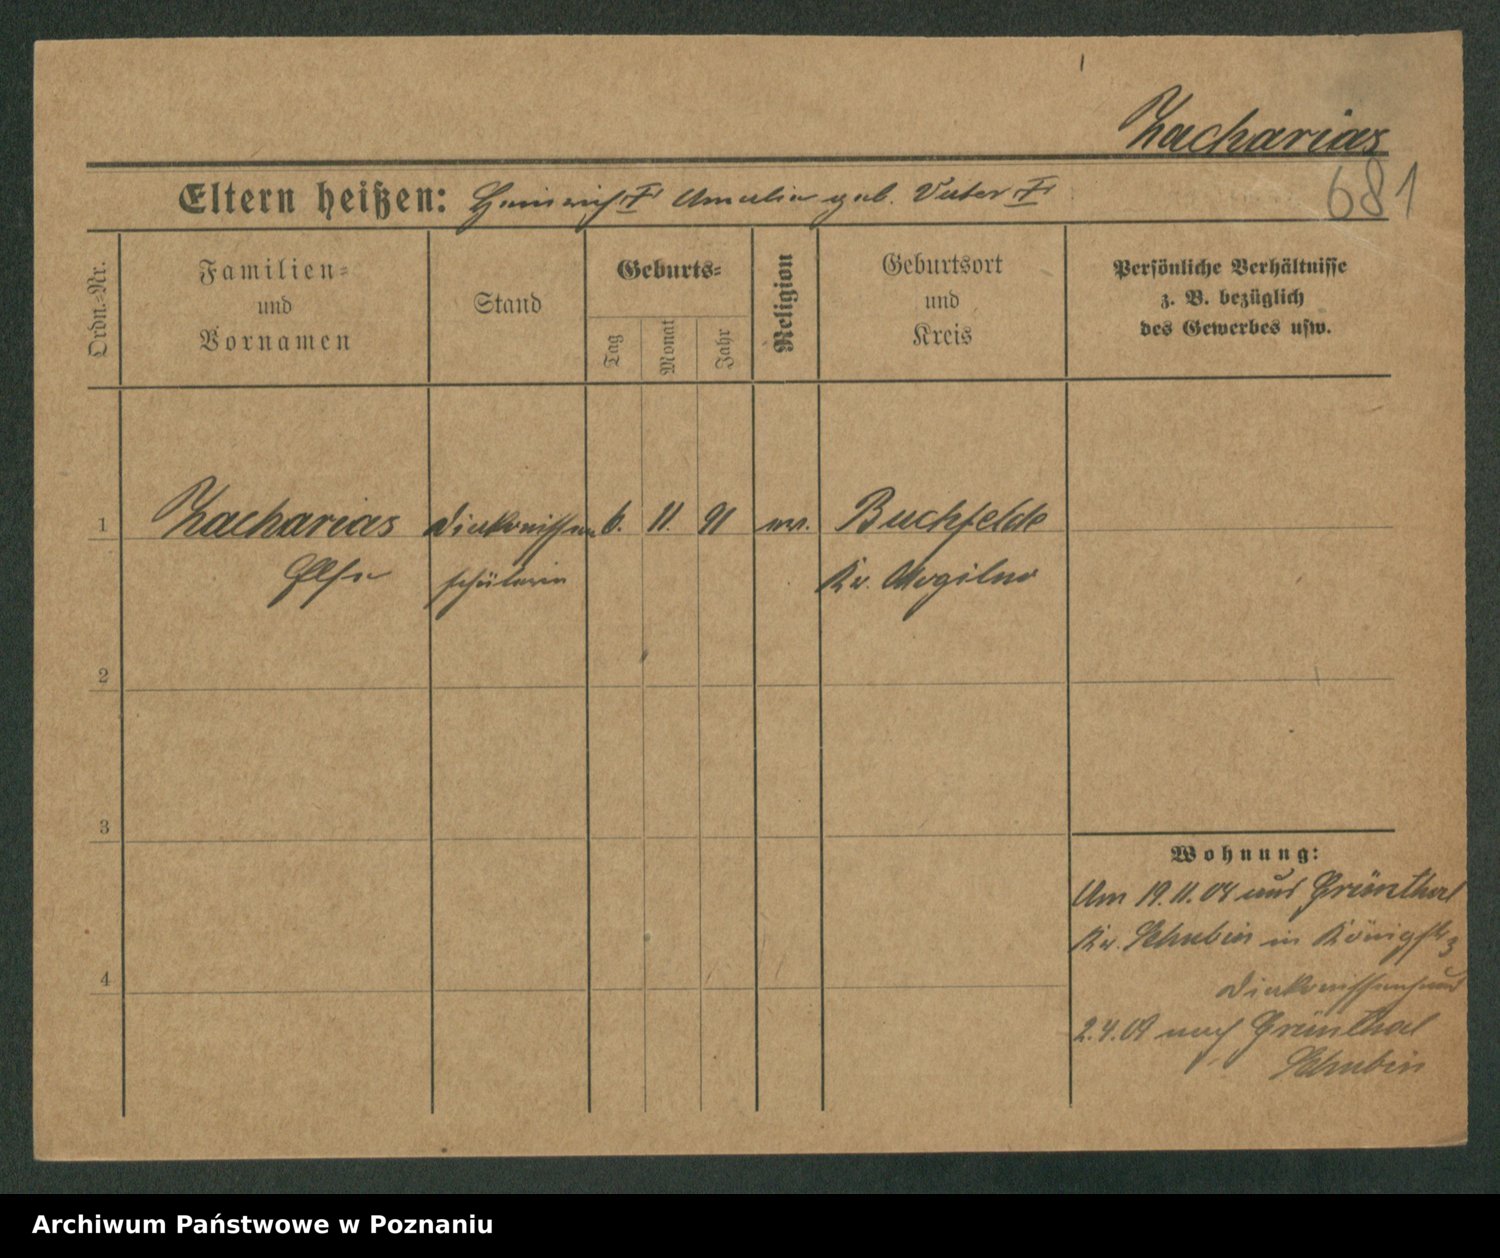 Zacharias
681
Eltern heißen: Heinrich † Amalie geb. Vater †
Ordn.-Nr.
Familien-
und
Vornamen
Stand
Geburts-
Tag
Monat
Jahr
Religion
Geburtsort
und
Kreis
Persönliche Verhältnisse
z. B. bezüglich
des Gewerbes usw.
1 Zacharias Diakonissen 6. 11. 91 ev. Buchfelde
Else schülerin Kr. Mogilno
2
3
Wohnung:
Am 19.11.08 aus Grünthal
Kr. Schubin in Königstr 3
4
Diakonissenhaus
2.4.09 nach Grünthal
Schubin
Archiwum Państwowe w Poznaniu